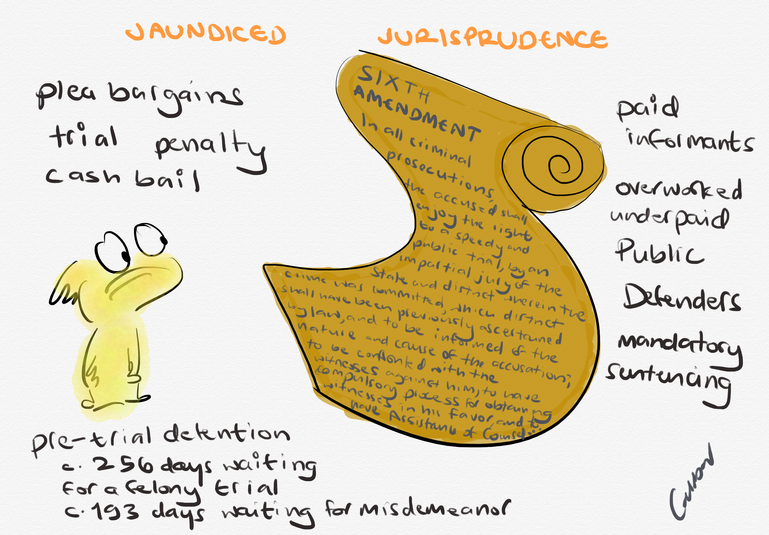 JAUNDICED JURISPRUDENCE
plea bargains
trial penalty
cash bail
SIXTH
AMENDMENT
In all criminal
prosecutions,
the accused shall
enjoy the right
to a speedy and
public trial, by an
impartial jury of the
State and district wherein the
crime was committed, which district
shall have been previously ascertained
by law, and to be informed of the
nature and cause of the accusation;
to be confronted with the
witnesses against him; to have
compulsory process for obtaining
witnesses in his favor, and to
have Assistance of Counsel
paid
informants
overworked
underpaid
Public
Defenders
mandatory
sentencing
pre-trial detention
c. 256 days waiting
for a felony trial
c. 193 days waiting for misdemeanor